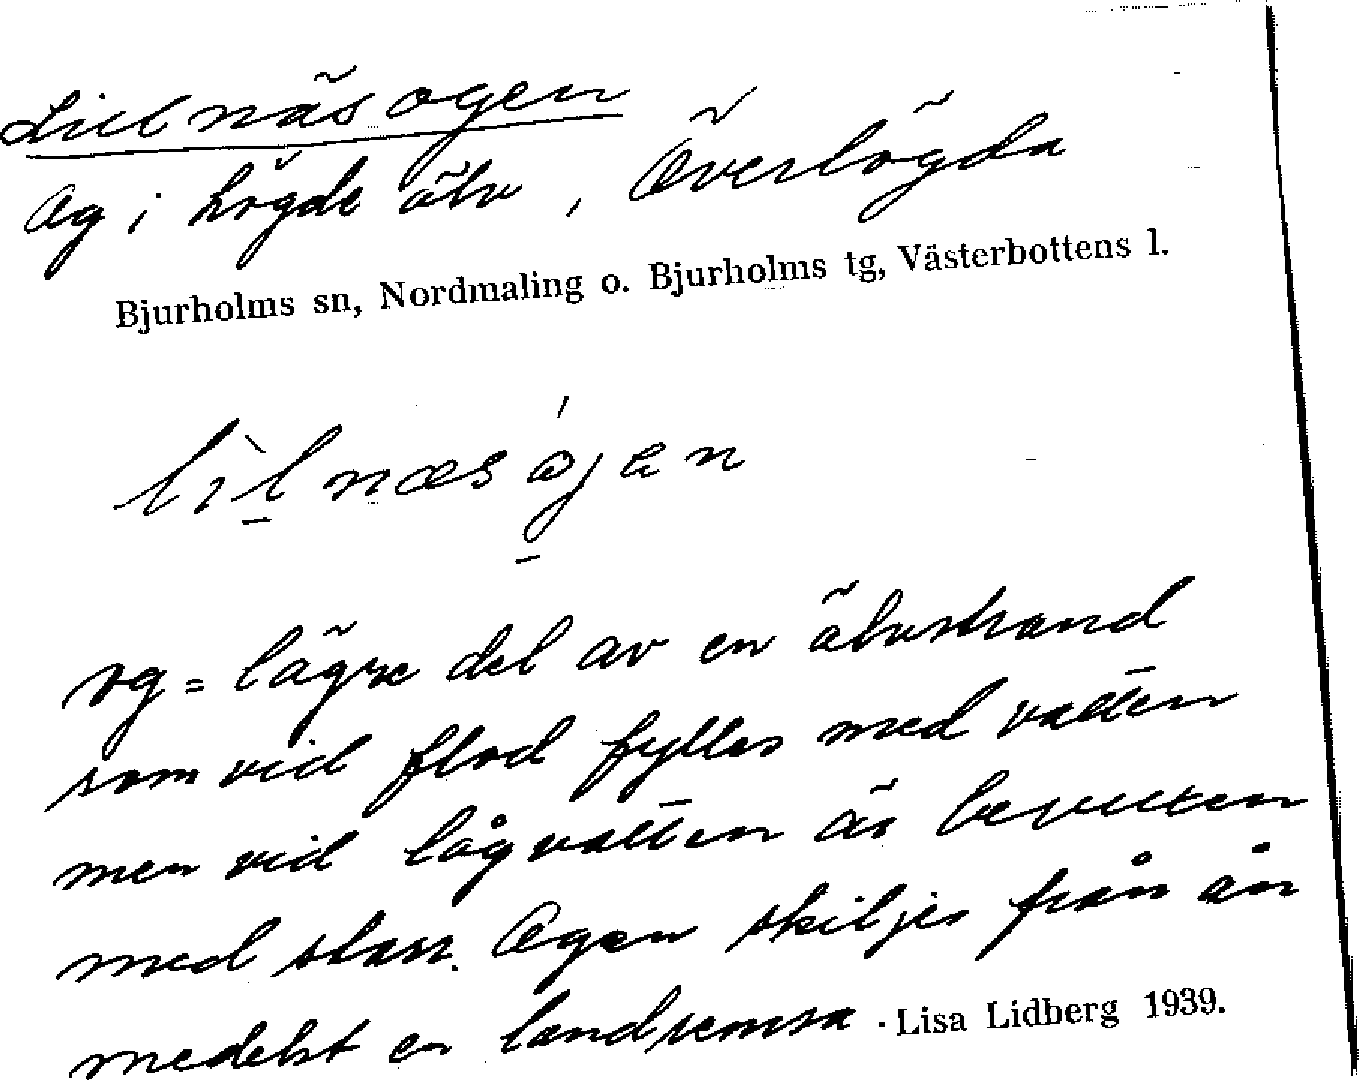 Lillnäsogen
Og i Lögde älv, Överlögda
Bjurholms sn, Nordmaling o. Bjurholms tg, Västerbottens l.
og = lägre del av en älvstrand
som vid flod fylles med vatten
men vid lågvatten är bevuxen
med starr. Ogen skiljes från ån
medelst en landremsa. Lisa Lidberg 1939.